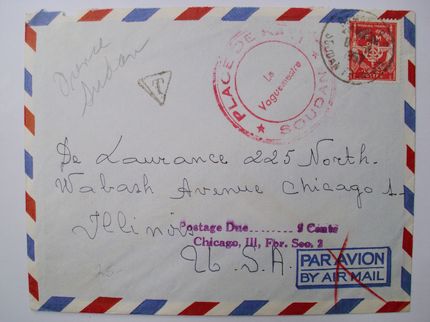 France
Sudan
T
PLACE DE
SOUDAN
Le
Vaguemestre
SOUDAN
De Laurance 225 North.
Wabash Avenue Chicago
Illinois
Postage Due ........ 2 Cents
Chicago, Ill, For. Sec. 2
U.S.A.
PAR AVION
BY AIR MAIL